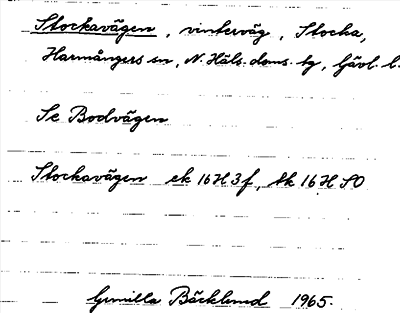 Stockavägen, vinterväg, Stocka,
Harmångers sn, N. Häls. doms. tg, Gävl. l.
Se Bodvägen
Stockavägen ek 16H3f, tk 16H SO
Gunilla Bäcklund 1965.